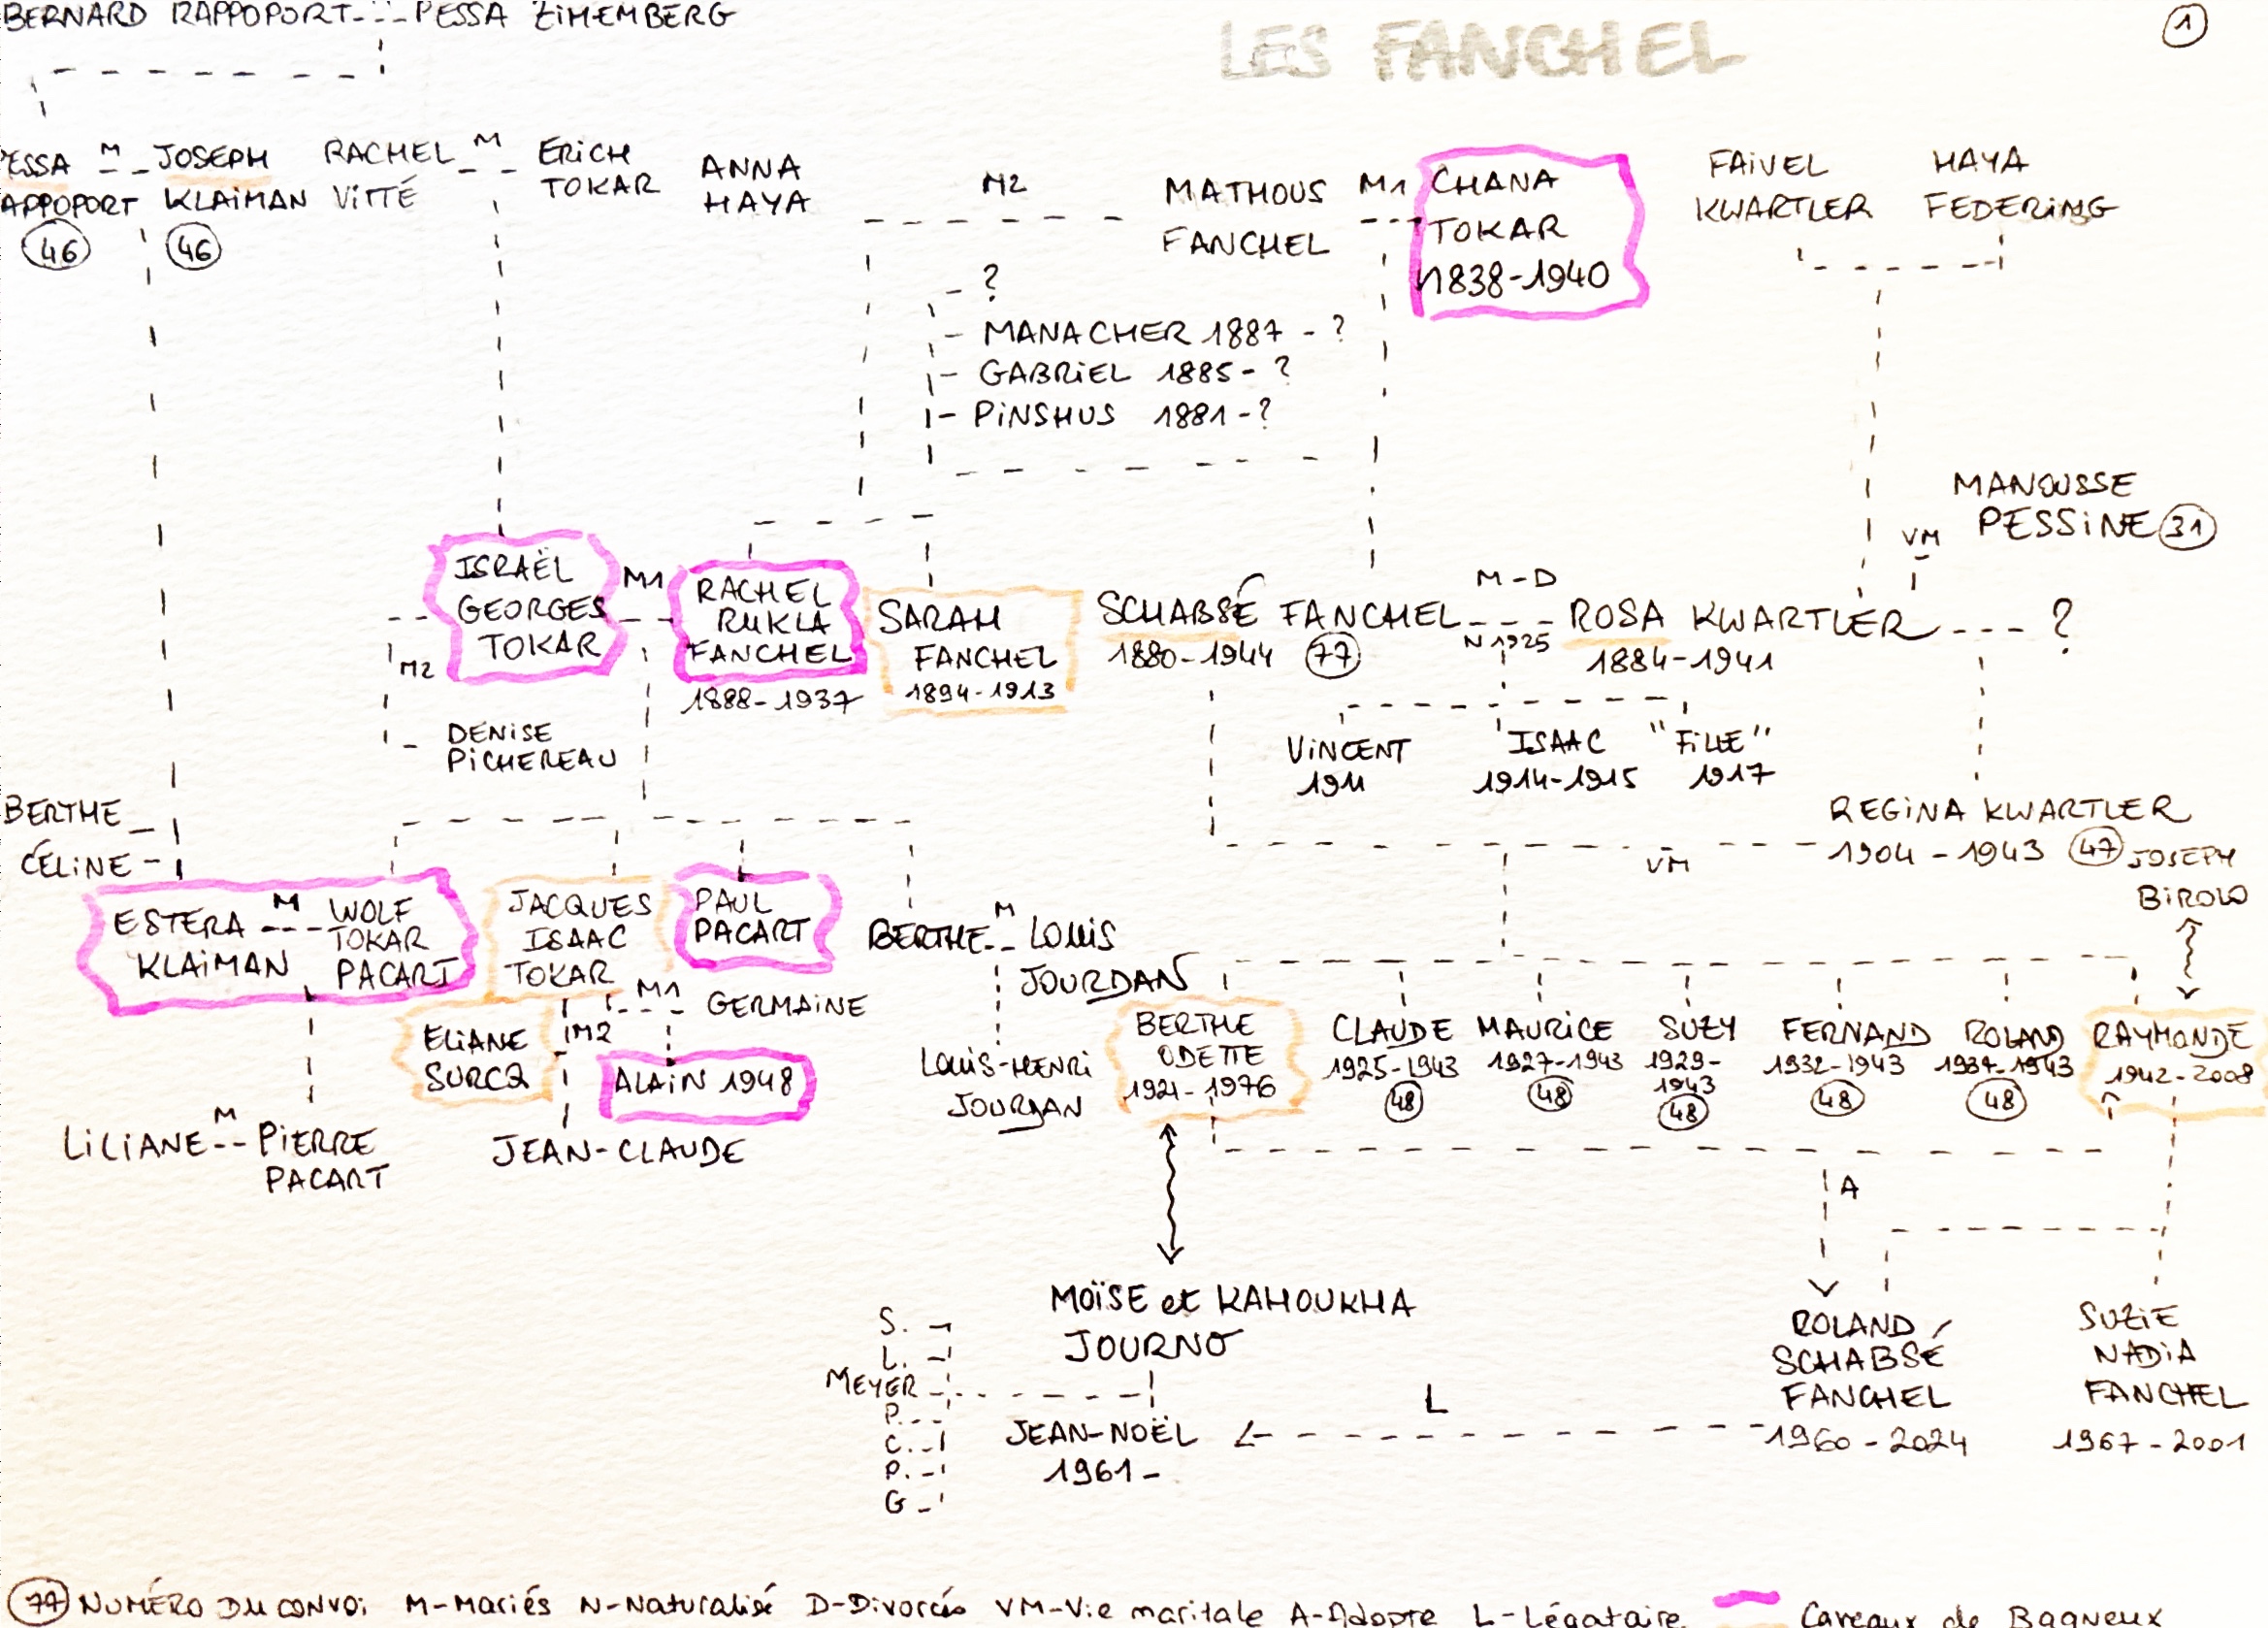 BERNARD RAPPOPORT PESSA ZIMEMBERG
LES FANCHEL
1
ESSA M JOSEPH
APPOPORT KLAIMAN
46 46
RACHEL M ERICH
VITTÉ TOKAR
ANNA
HAYA
M2
MATHOUS
FANCHEL
M1
CHANA
TOKAR
1838-1940
FAIVEL
KWARTLER
HAYA
FEDERING
- ?
- MANACHER 1887 - ?
- GABRIEL 1885 - ?
- PINSHUS 1881 - ?
MANOUSSE
PESSINE 31
VM
ISRAËL
GEORGES
TOKAR
M1
RACHEL
RUKLA
FANCHEL
1888-1937
SARAH
FANCHEL
1894-1913
SCHABSÉ FANCHEL
1880-1944 77
M-D
N 1925
ROSA KWARTLER
1884-1941
?
M2
DENISE
PICHEREAU
VINCENT
1911
ISAAC
1914-1915
"FILLE"
1917
BERTHE
CÉLINE
REGINA KWARTLER
1904-1943 47
VM
JOSEPH
BIROLO
ESTERA M WOLF
KLAIMAN TOKAR
PACART
JACQUES
ISAAC
TOKAR
PAUL
PACART
BERTHE M LOUIS
JOURDAN
M1 GERMAINE
ELIANE
SURCQ
M2
ALAIN 1948
LOUIS-HENRI
JOURDAN
BERTHE
ODETTE
1921-1976
CLAUDE
1925-1943
48
MAURICE
1927-1943
48
SUZY
1929-
1943
48
FERNAND
1932-1943
48
ROLAND
1937-1943
48
RAYMONDE
1942-2008
LILIANE M PIERRE
PACART
JEAN-CLAUDE
A
MOÏSE et KAHOUKHA
JOURNO
S.
L.
MEYER
P.
C.
P.
G
JEAN-NOËL
1961-
L
ROLAND
SCHABSÉ
FANCHEL
1960-2024
SUZIE
NADIA
FANCHEL
1967-2001
77 NUMÉRO DU CONVOI M-Mariés N-Naturalisé D-Divorcés VM-Vie maritale A-Adopte L-Légataire Caveaux de Bagneux